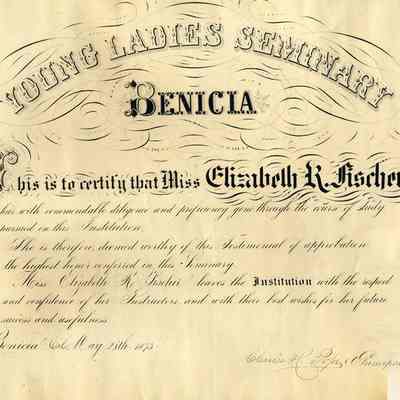 YOUNG LADIES SEMINARY
BENICIA
This is to certify that Miss Elizabeth R. Fischer
has with commendable diligence and proficiency gone through the course of study
pursued in this Institution.
She is therefore deemed worthy of this Testimonial of approbation
the highest honor conferred in this Seminary
Miss Elizabeth R. Fischer leaves the Institution with the respect
and confidence of her Instructors and with their best wishes for her future
success and usefulness.
Benicia Cal. May 28th 1873
Charles H. Principal